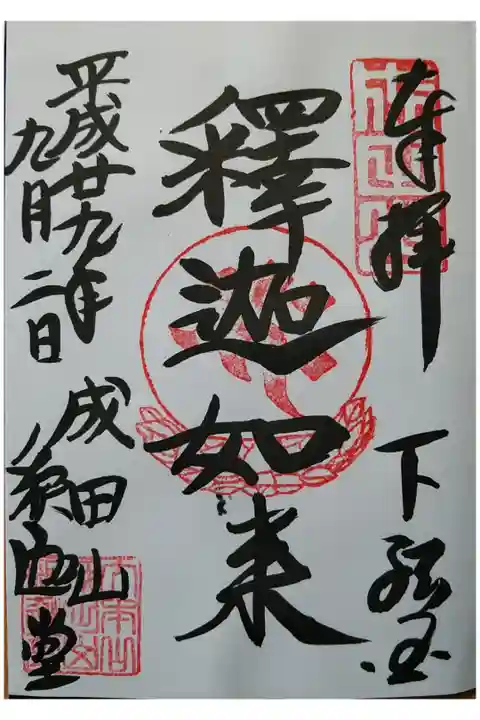 奉拝 下総国
釋迦如来
成田山
釈迦堂
平成廿九年
九月二日